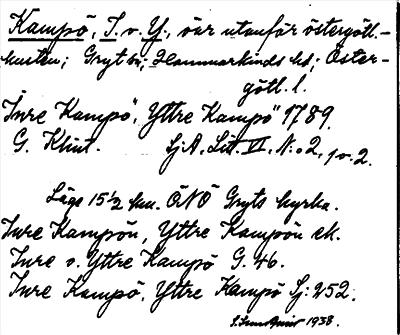 Kampö, I. o. Y., öar utanför östergötl.-
kusten; Gryt sn; Hammarkinds hd; Öster-
götl. l.
"Inre Kampö", "Yttre Kampö" 1789.
G. Klint. Sj.A. Litt. VI, N:o 2, 
Läge 15½ km. ÖNÖ Gryts kyrka.
Inre Kampön, Yttre Kampön ek.
Inre o. Yttre Kampö G. 46.
Inre Kampö, Yttre Kampö Sj. 252.
1938.